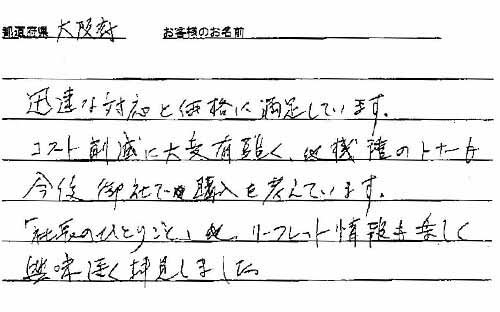 都道府県 大阪府 お客様のお名前
迅速な対応と価格に満足しています。
コスト削減に大変有難く、他機種のトナーも
今後御社で購入を考えています。
「社長のひとりごと」他、リーフレット情報も楽しく
興味深く拝見しました。